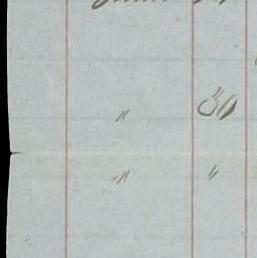 " 30
" "